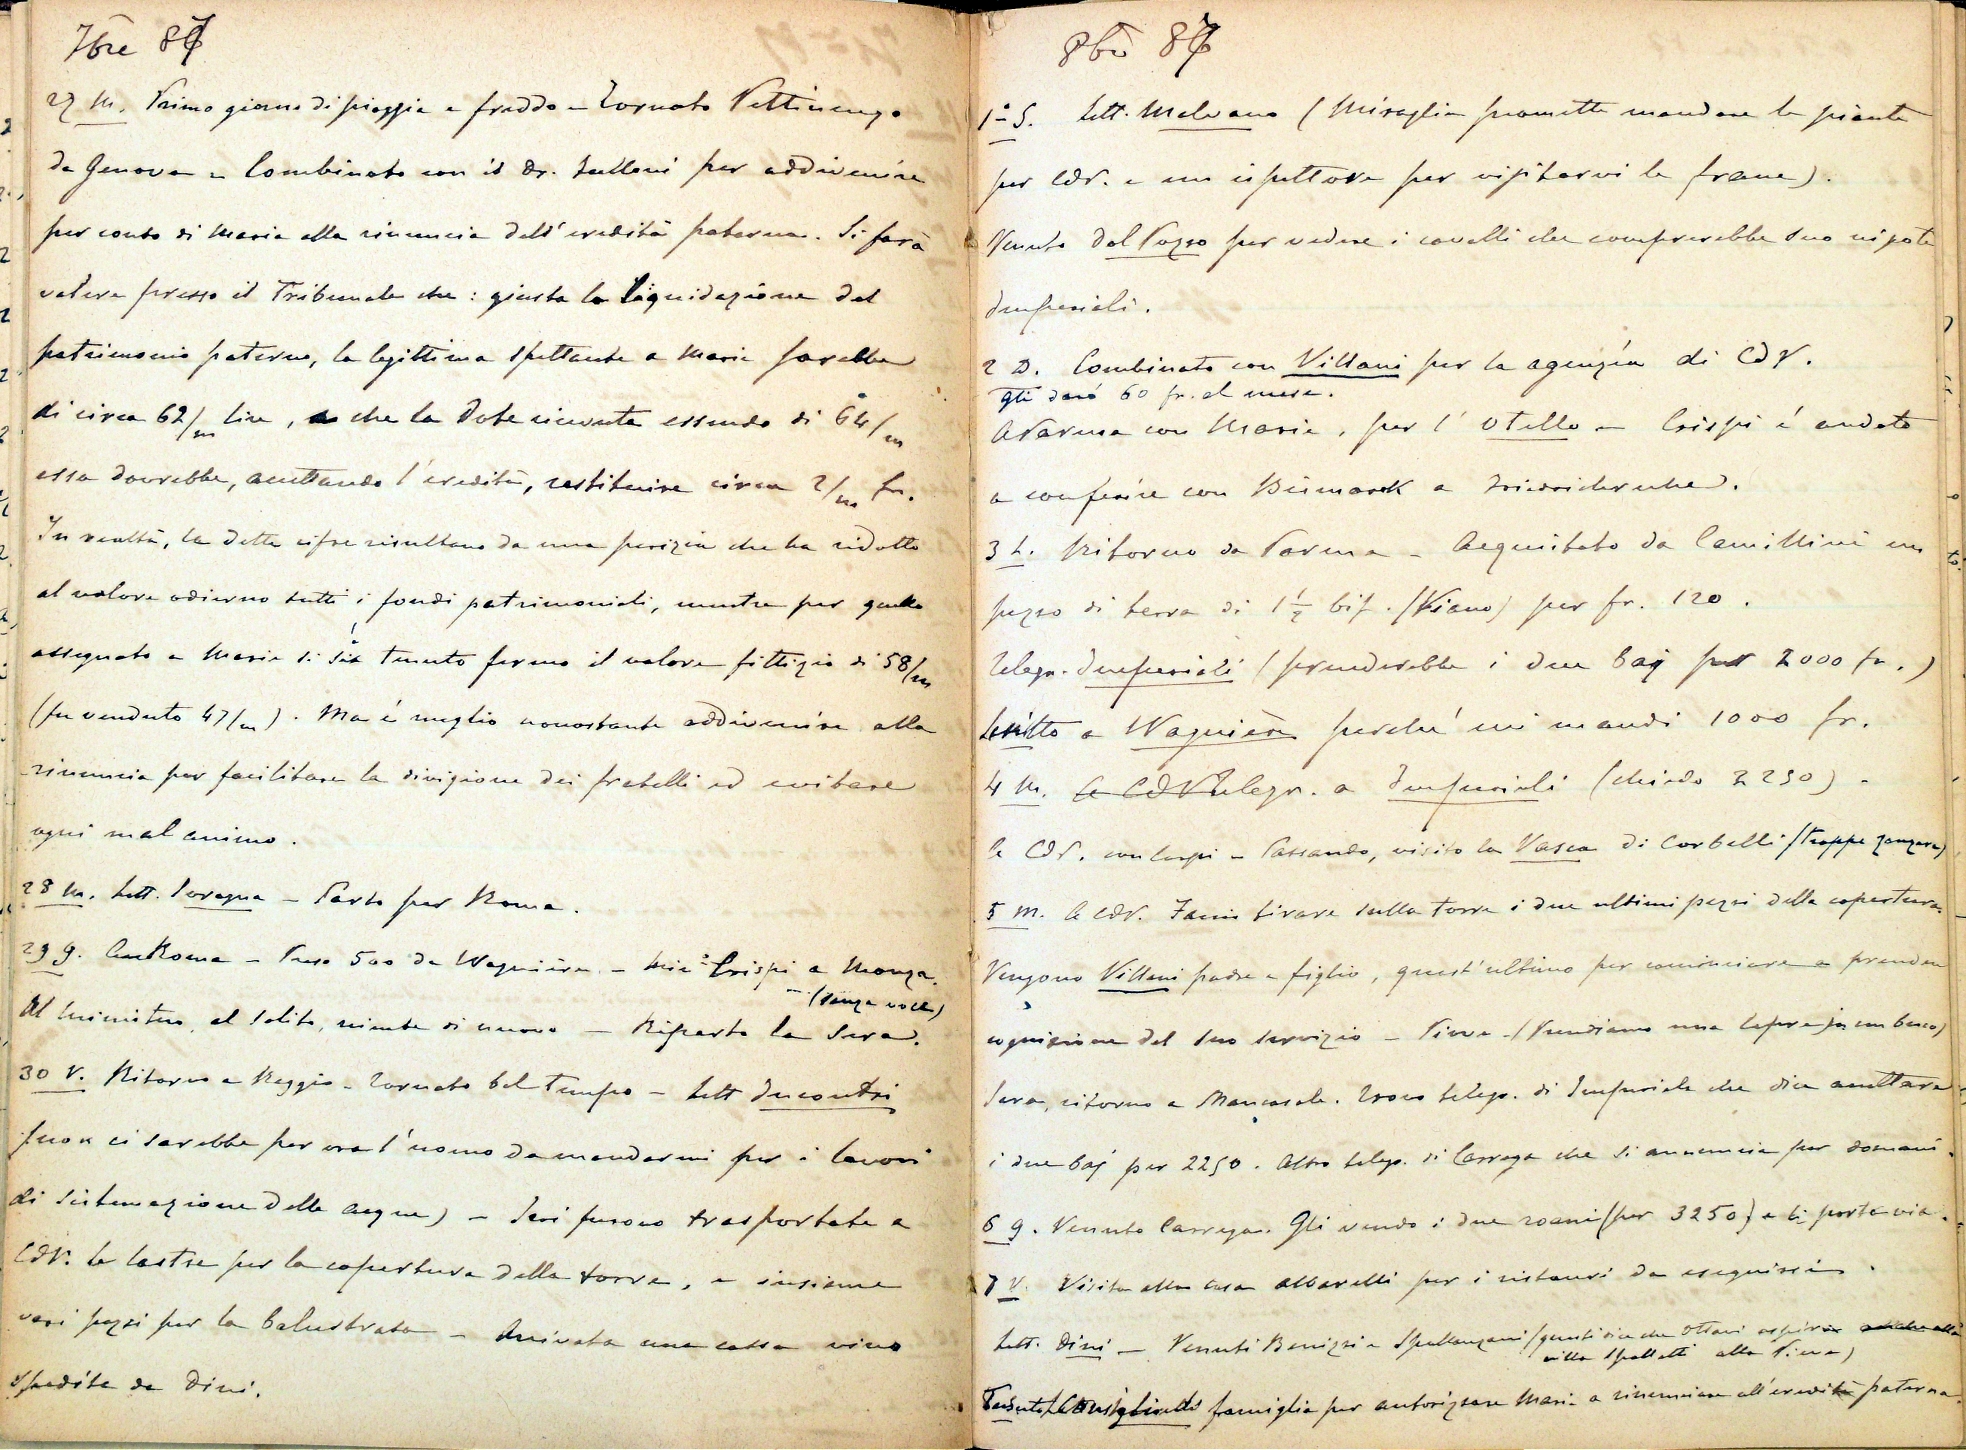 7bre 87
27 M. Primo giorno di pioggia e freddo – Tornato Pettinengo
da Genova – Combinato con il Dr. per addivenire
per conto di Maria alla rinuncia dell'eredità paterna. Si farà
valere presso il Tribunale che: giusta la liquidazione del
patrimonio paterno, la legittima spettante a Maria sarebbe
di circa 62/m lire, che la dote ricevuta essendo di 64/m
essa dovrebbe, accettando l'eredità, restituire circa 2/m fr.
In realtà, la dette cifre risultano da una perizia che ha ridotto
al valore odierno tutti i fondi patrimoniali, mentre per quello
assegnato a Maria si è tenuto fermo il valore fittizio di 58/m
(fu venduto 47/m). Ma è meglio nonostante addivenire alla
rinuncia per facilitare la divisione dei fratelli ed evitare
ogni mal animo.
28 M. Lett. Soragna – Parto per Roma.
29 G. A Roma – Preso 500 da Wagnière – Crispi a Monza.
(senza voce)
Al ministero, al solito, niente di nuovo – Riparto la sera.
30 V. Ritorno a Reggio – Tornato bel tempo – Lett Incontri
(non ci sarebbe per ora l'uomo da mandarmi per i lavori
di sistemazione delle acque) – Ieri furono trasportate a
CdV. le lastre per la copertura della torre, e insieme
vari pezzi per la balustrata – Arrivata una cassa vino
spedita da Dini.
8bre 87
1° S. Lett. Malvano (Miraglia promette mandare le piante
per CdV. e un ispettore per visitarvi le frane).
Venuto Dal Pozzo per vedere i cavalli che comprerebbe suo nipote
Imperiali.
2 D. Combinato con Villani per la agenzia di CdV.
Gli darò 60 fr. al mese.
A Parma con Maria, per l'Otello – Crispi è andato
a conferire con Bismarck a Friedrichsruhe.
3 L. Ritorno da Parma – Acquistato da Camillini un
pezzo di terra di 1 1/2 bif. (Viano) per fr. 120.
Telegr. Imperiali (prenderebbe i due baj per 2000 fr.)
Scritto a Wagnière perchè mi mandi 1000 fr.
4 M. A CdV Telegr. a Imperiali (chiedo 2250) –
A CdV. con – Passando, visito la Vasca di Corbelli (troppe zanzare)
5 M. A CdV. Fanno tirare sulla torre i due ultimi pezzi della copertura.
Vengono Villani padre e figlio, quest'ultimo per cominciare a prendere
cognizione del suo servizio – Piove – (Prendiamo una lepre in un bosco)
Sera, ritorno a Mancasale. Trovo telegr. di Imperiale che dice accettare
i due baj per 2250. Altro telegr. di Carrega che si annuncia per domani.
6 G. Venuto Carrega. Gli vendo i due roani (per 3250) e li porta via.
7 V. Visita alla casa Albarelli per i ristauri da eseguirsi.
Lett. Dini – Venuti Benizzi e Spallanzani (questi dice che Ottavi
villa Spalletti alla Pieve)
famiglia per autorizzare Maria a rinunciare all'eredità paterna.